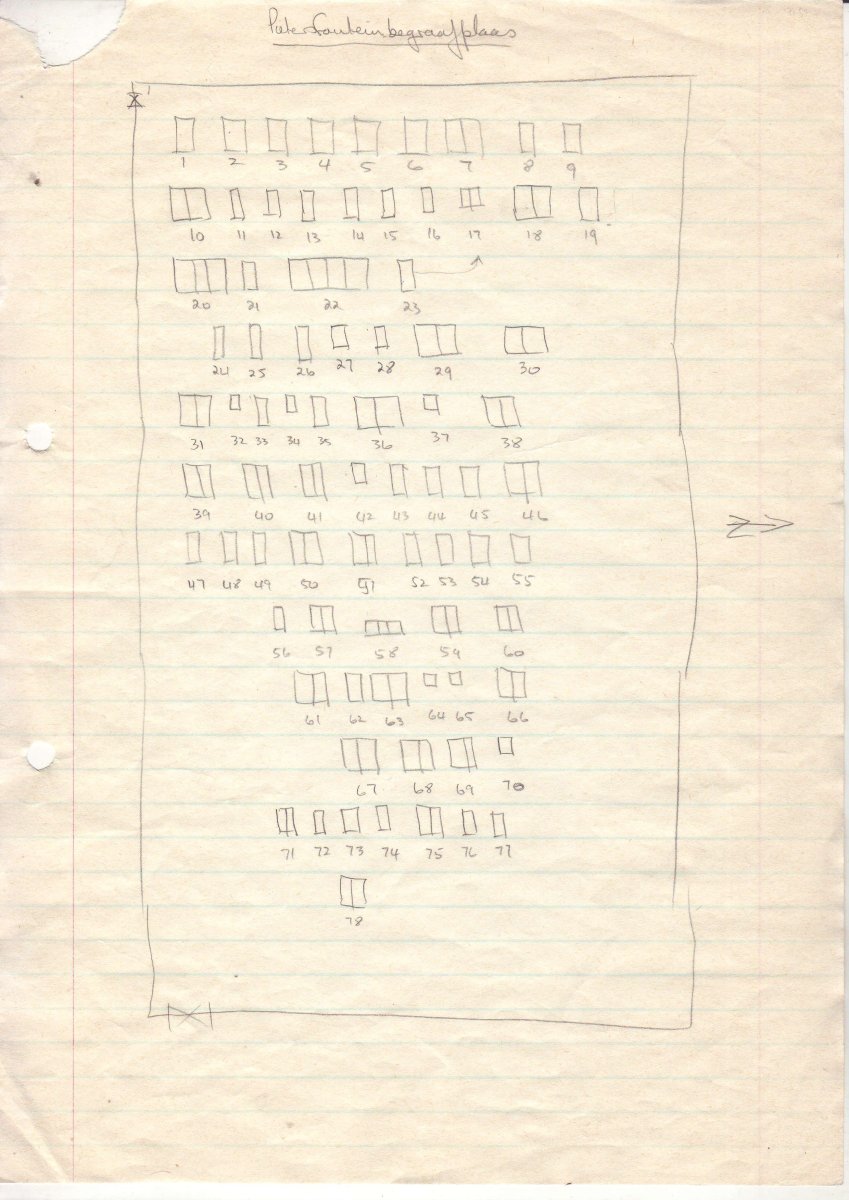 Pietersfonteinbegraafplaas
1 2 3 4 5 6 7 8 9
10 11 12 13 14 15 16 17 18 19
20 21 22 23
24 25 26 27 28 29 30
31 32 33 34 35 36 37 38
39 40 41 42 43 44 45 46
N
47 48 49 50 51 52 53 54 55
56 57 58 59 60
61 62 63 64 65 66
67 68 69 70
71 72 73 74 75 76 77
78